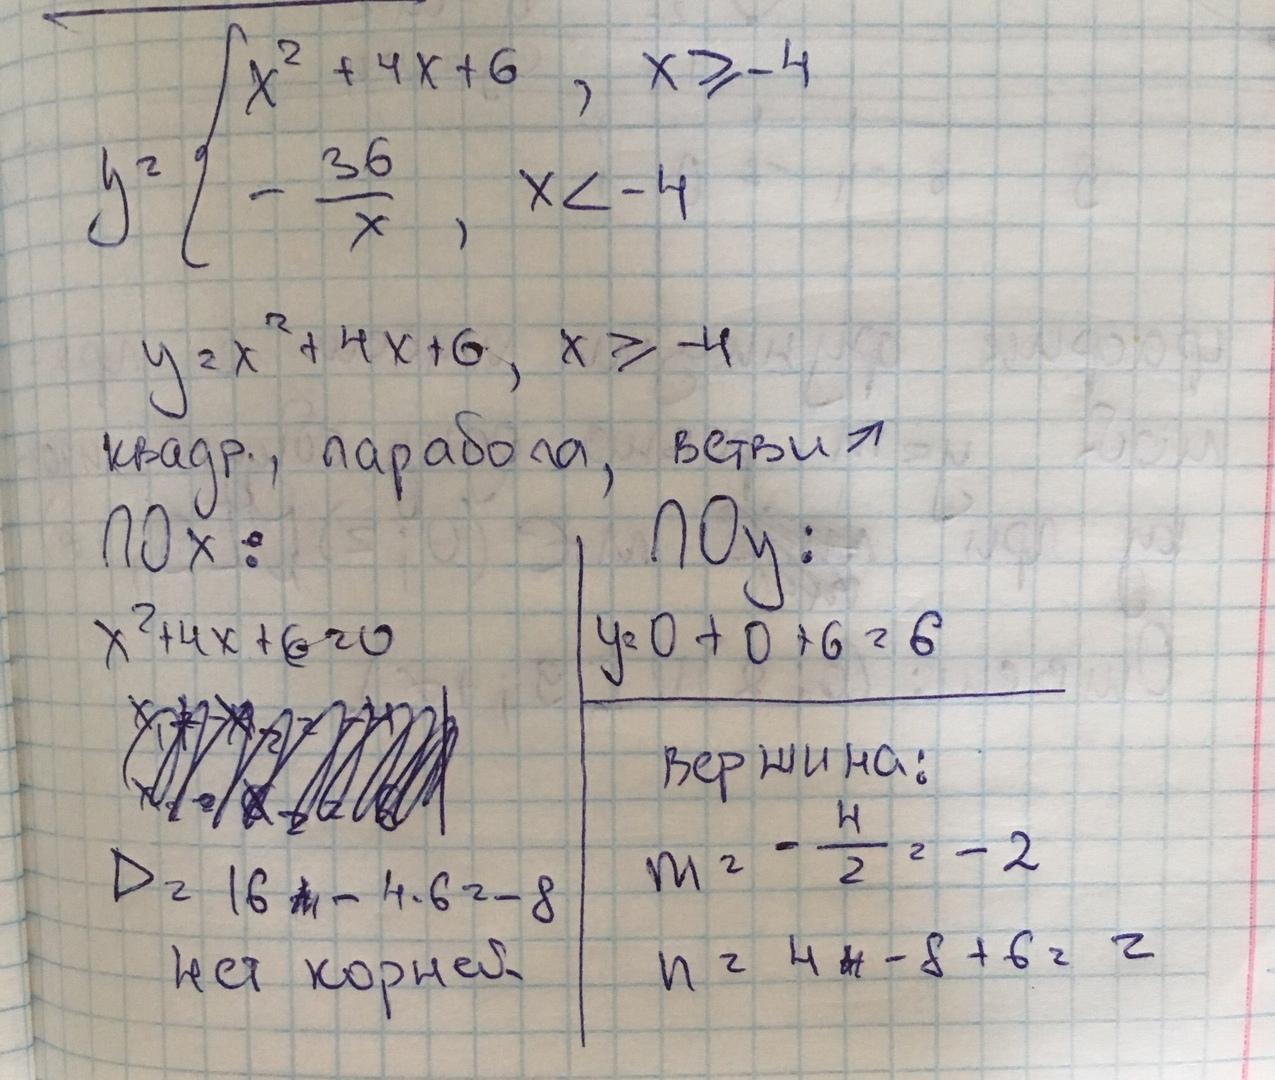 y = { x² + 4x + 6 , x ⩾ -4
- 36/x , x < -4
y = x² + 4x + 6, x ⩾ -4
квадр., парабола, ветви ↗
ПОx:
x² + 4x + 6 = 0
D = 16 - 4·6 = -8
нет корней
ПОy:
y = 0 + 0 + 6 = 6
вершина:
m = - 4/2 = -2
n = 4 - 8 + 6 = 2